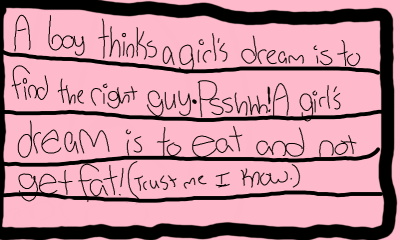 A boy thinks a girl's dream is to
find the right guy. Psshhh! A girl's
dream is to eat and not
get fat! (Trust me I know.)